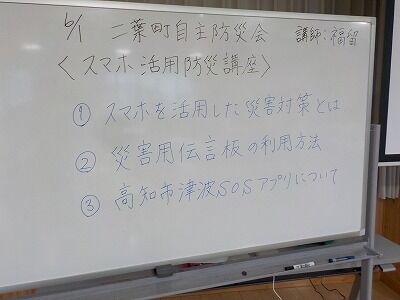 6/1 二葉町自主防災会 講師:福留
〈スマホ活用防災講座〉
① スマホを活用した災害対策とは
② 災害用伝言板の利用方法
③ 高知市津波SOSアプリについて